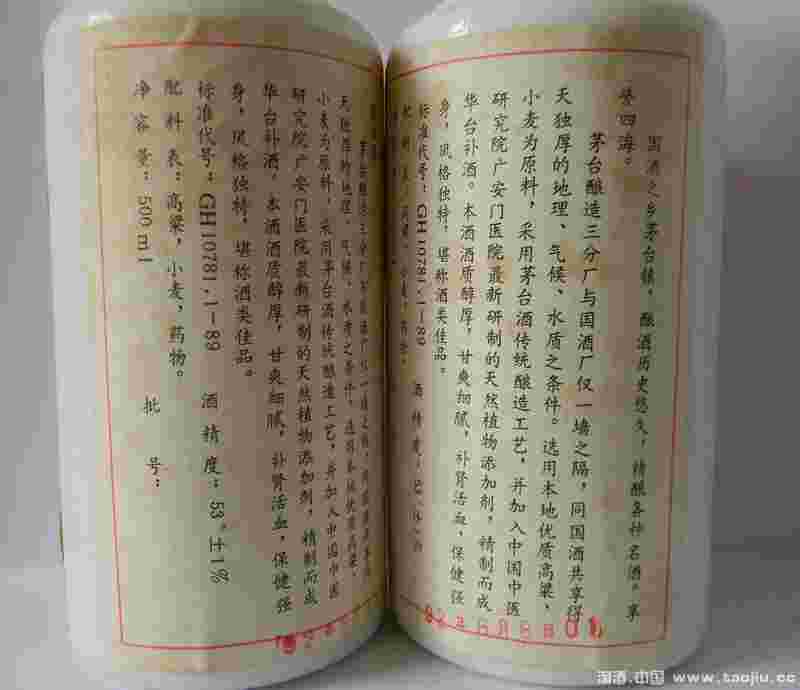 国酒之乡茅台镇，酿酒历史悠久，精酿各种名酒。享
誉四海。
茅台酿造三分厂与国酒厂仅一墙之隔，同国酒共享得
天独厚的地理、气候、水质之条件。选用本地优质高粱、
小麦为原料，采用茅台酒传统酿造工艺，并加入中国中医
研究院广安门医院最新研制的天然植物添加剂，精制而成
华台补酒。本酒酒质醇厚，甘爽细腻，补肾活血，保健强
身，风格独特，堪称酒类佳品。
标准代号：GH10781.1-89 酒精度：
茅台酿造三分厂与国酒厂仅一墙之隔，
天独厚的地理、气候、水质之条件。选用本地优质高粱、
小麦为原料，采用茅台酒传统酿造工艺，并加入中国中医
研究院广安门医院最新研制的天然植物添加剂，精制而成
华台补酒。本酒酒质醇厚，甘爽细腻，补肾活血，保健强
身，风格独特，堪称酒类佳品。
标准代号：GH10781.1-89 酒精度：53°±1%
配料表：高粱，小麦，药物。
净容量：500ml 批号：
淘酒.中国 www.taojiu.cc